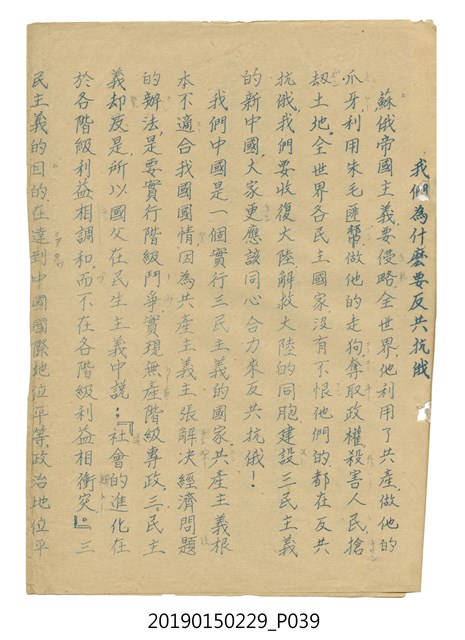 我們為什麽要反共抗俄
蘇俄帝國主義、要侵略全世界、他利用了共產、做他的
爪牙利用朱毛匪幫做他的走狗、奪取政權、殺害人民、搶
刼土地。全世界各民主國家没有不恨他們的、都在反共
抗俄、我們要收復大陸、解救大陸的同胞、建設三民主義
的新中國、大家更應該同心合力來反共抗俄！
我們中國是一個實行三民主義的國家、共產主義根
本不適合我國國情因為共產主義主張解決經濟問題
的辦法、是要實行階級鬥爭實現無產階級專政、三民主
義却反是、所以國父在民生主義中說：『社會的進化在
於各階級利益相調和、而不在各階級利益相衝突。』三
民主義的目的、在達到中國國際地位平等、政治地位平
20190150229_P039